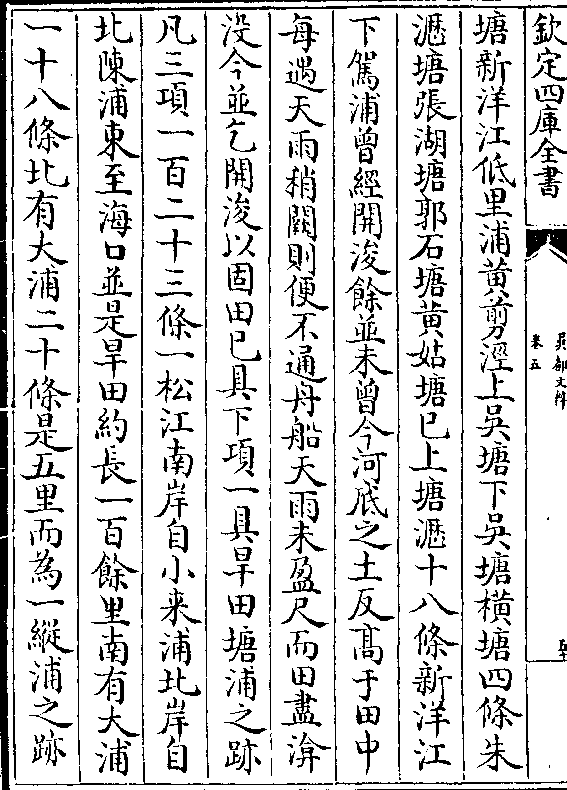 欽定四庫全書
卷五
塘新洋江低里浦黄翦涇上吳塘下吳塘横塘四條朱
瀝塘張湖塘郭石塘黄姑塘已上塘瀝十八條新洋江
下駕浦曽經開浚餘並未曽今河底之土反髙于田中
每遇天雨稍闕則便不通舟船天雨未盈尺而田盡渰
沒今並乞開浚以固田已具下項一具旱田塘浦之跡
凡三項一百二十三條一松江南岸自小来浦北岸自
北陳浦東至海口並是旱田約長一百餘里南有大浦
一十八條北有大浦二十條是五里而為一縱浦之跡